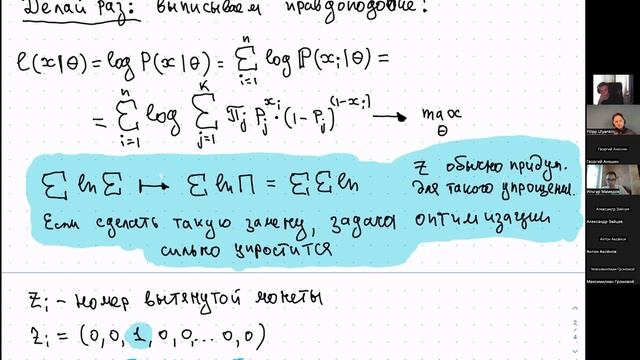 Делай раз: выписываем правдоподобие:
ℓ(x|θ) = log P(x|θ) = Σ_{i=1}^{n} log P(x_i|θ) =
= Σ_{i=1}^{n} log Σ_{j=1}^{K} π_j p_j^{x_i} · (1-p_j)^{(1-x_i)} → max_θ
Σ ln Σ ↦ Σ ln Π = Σ Σ ln
z обычно придум.
для такого упрощения.
Если сделать такую замену, задача оптимизации
сильно упростится
z_i - номер вытянутой монеты
z_i = (0, 0, 1, 0, 0, ... 0, 0)
Filipp Ulyankin
Георгий Аношин
Георгий Аношин
Ильгар Мамедов
Александр Зайцев
Александр Зайцев
Антон Аксёнов
Антон Аксёнов
Максимилиан Громовой
Максимилиан Громовой